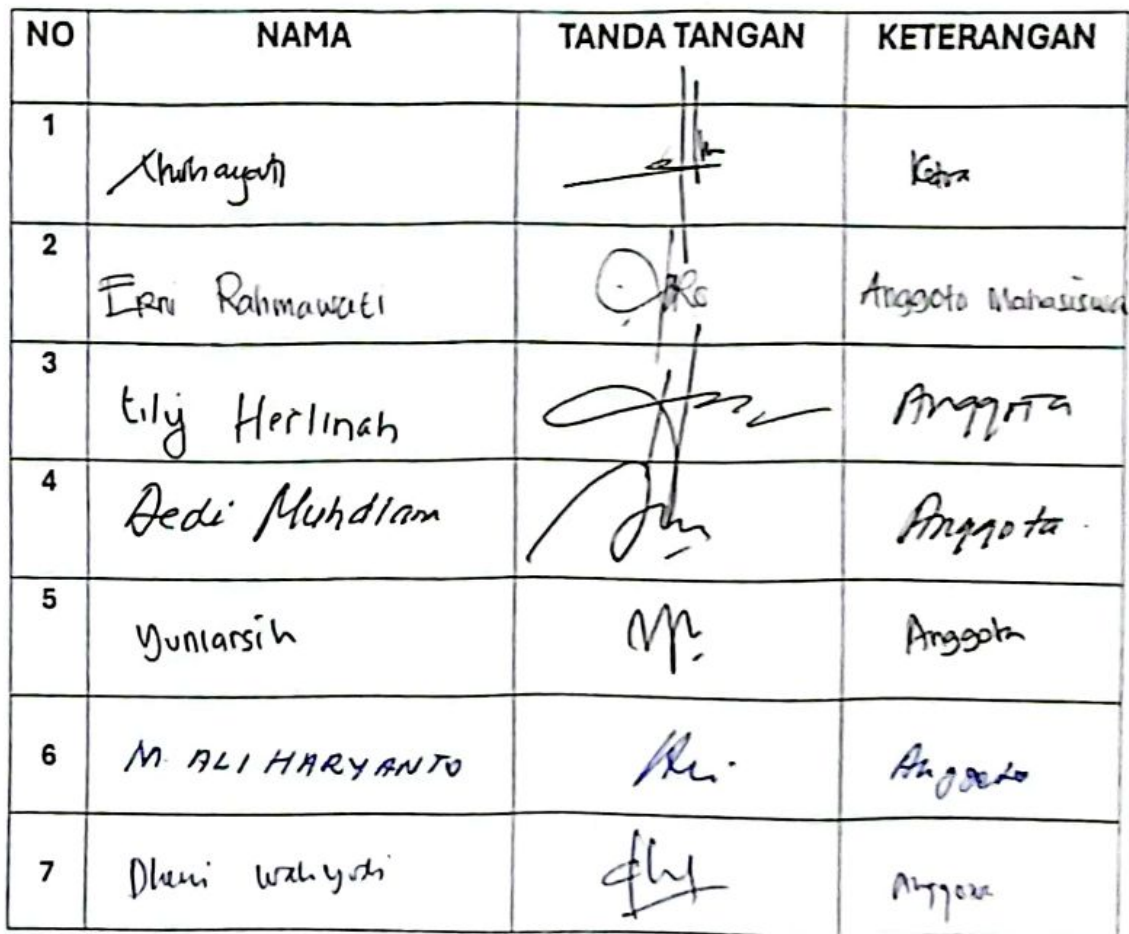 NO NAMA TANDA TANGAN KETERANGAN
1 Ketua
2 Erni Rahmawati Anggota Mahasiswa
3 Lily Herlinah Anggota
4 Dedi Muhdiana Anggota
5 Yuniarsih Anggota
6 M. ALI HARYANTO Anggota
7 Dheni Wahyudi Anggota